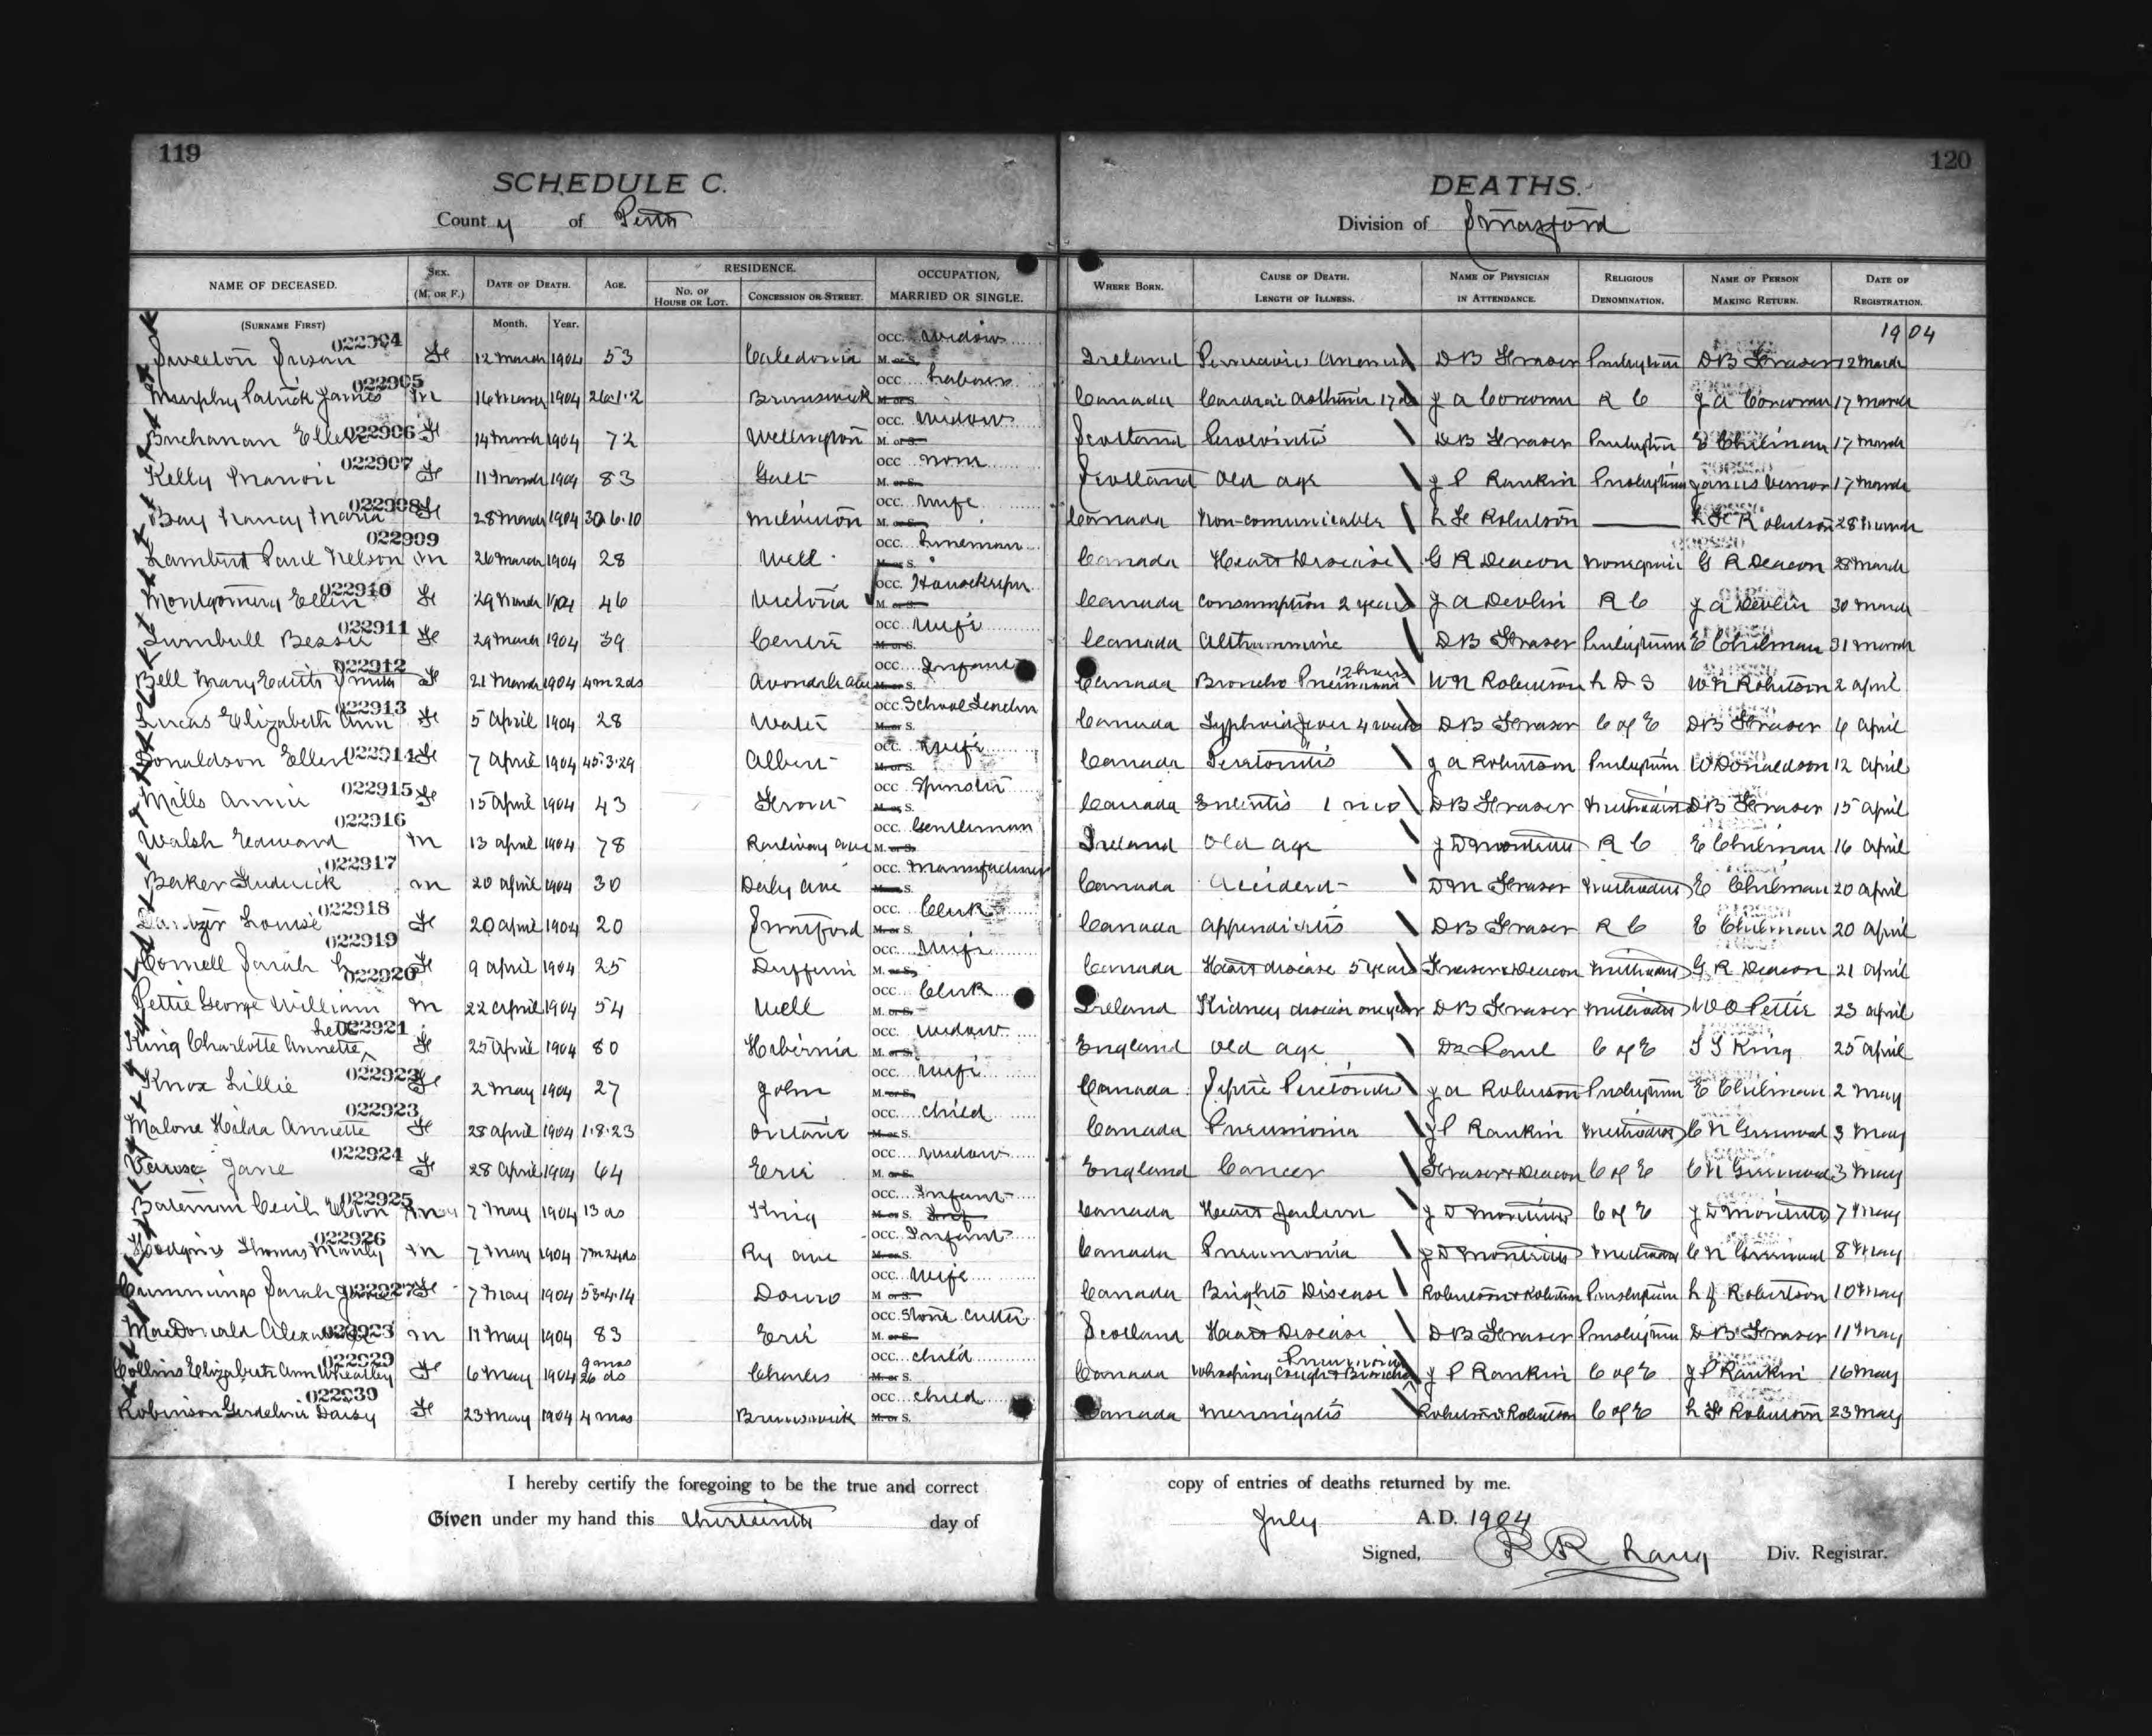 119
120
SCHEDULE C.
DEATHS.
County of Perth
Division of Stratford
NAME OF DECEASED. SEX. (M. OR F.) DATE OF DEATH. AGE. RESIDENCE. No. OF HOUSE OR LOT. CONCESSION OR STREET. OCCUPATION, MARRIED OR SINGLE. WHERE BORN. CAUSE OF DEATH. LENGTH OF ILLNESS. NAME OF PHYSICIAN IN ATTENDANCE. RELIGIOUS DENOMINATION. NAME OF PERSON MAKING RETURN. DATE OF REGISTRATION.
(SURNAME FIRST) Month. Year. 1904
022904 Susan Fe 12 March 1904 53 Caledonia OCC. Widow M. or S. Ireland Pernicious D B Fraser Presbyterian D B Fraser 12 March
022905 Murphy Patrick James M 16 March 1904 26·1·2 Brunswick OCC. Laborer M. or S. Canada Cardiac Asthma J A Corcoran R C J A Corcoran 17 March
022906 Buchanan Ellen Fe 14 March 1904 72 Wellington OCC. Widow M. or S. Scotland D B Fraser E Chilman 17 March
022907 Kelly Fe 11 March 1904 83 Galt OCC. M. or S. Scotland Old age J P Rankin Presbyterian James Vernon 17 March
022908 Bay Nancy Maria Fe 28 March 1904 30·6·10 OCC. Wife M. or S. Canada Non-comunicable L F Robertson L F Robertson 28 March
022909 Lambert Paul Nelson M 26 March 1904 28 Well OCC. Lineman M. or S. Canada Heart Disease G R Deacon G R Deacon 28 March
022910 Montgomery Ellen Fe 29 March 1904 46 Victoria OCC. Housekeeper M. or S. Canada Consumption 2 years J A Devlin R C J A Devlin 30 March
022911 Turnbull Bessie Fe 29 March 1904 39 Centre OCC. Wife M. or S. Canada D B Fraser Presbyterian E Chilman 31 March
022912 Bell Mary Edith Fe 21 March 1904 4m 2ds Avondale Ave OCC. Infant M. or S. Canada Broncho Pneumonia 12 hours W N Robertson L D S W N Robertson 2 April
022913 Lucas Elizabeth Ann Fe 5 April 1904 28 Water OCC. School Teacher M. or S. Canada Typhoid fever 4 weeks D B Fraser C of E D B Fraser 6 April
022914 Donaldson Ellen Fe 7 April 1904 45·3·29 Albert OCC. Wife M. or S. Canada Peretonitis J A Robertson Presbyterian W Donaldson 12 April
022915 Mills Annie Fe 15 April 1904 43 Front OCC. Spinster M. or S. Canada D B Fraser Methodist D B Fraser 15 April
022916 Walsh Edward M 13 April 1904 78 Railway Ave OCC. Gentleman M. or S. Ireland Old age J D Monteith R C E Chilman 16 April
022917 Baker Frederick M 20 April 1904 30 Daly Ave OCC. Manufacturer M. or S. Canada Accident D M Fraser Methodist E Chilman 20 April
022918 Louise Fe 20 April 1904 20 Stratford OCC. Clerk M. or S. Canada Appendicitis D B Fraser R C E Chilman 20 April
022919 Cornell Sarah Fe 9 April 1904 25 Dufferin OCC. Wife M. or S. Canada Heart disease 5 years Fraser & Deacon Methodist G R Deacon 21 April
022920 Pettie George William M 22 April 1904 54 Well OCC. Clerk M. or S. Ireland Kidney disease one year D B Fraser Methodist W O Pettie 23 April
022921 King Charlotte Annette Fe 25 April 1904 80 Hibernia OCC. Widow M. or S. England Old age Dr Paul C of E King 25 April
022922 Knox Lillie Fe 2 May 1904 27 John OCC. Wife M. or S. Canada Septic Peretonitis J A Robertson Presbyterian E Chilman 2 May
022923 Malone Hilda Annette Fe 28 April 1904 1·8·23 Ontario OCC. Child M. or S. Canada Pneumonia J P Rankin Methodist C N Greenwood 3 May
022924 Jane Fe 28 April 1904 64 Erie OCC. Widow M. or S. England Cancer Fraser & Deacon C of E C N Greenwood 3 May
022925 Bateman Cecil M 7 May 1904 13 ds King OCC. Infant M. or S. Canada Heart failure J D Monteith C of E J D Monteith 7 May
022926 Hodgins Thomas Manly M 7 May 1904 7m 24ds Ry Ave OCC. Infant M. or S. Canada Pneumonia J D Monteith Methodist C N Greenwood 8 May
022927 Cummings Sarah Jane Fe 7 May 1904 53·4·14 Douro OCC. Wife M. or S. Canada Brights Disease Robertson & Robertson Presbyterian Robertson 10 May
022928 MacDonald Alexander M 11 May 1904 83 Erie OCC. Stone Cutter M. or S. Scotland Heart Disease D B Fraser Presbyterian D B Fraser 11 May
022929 Collins Elizabeth Ann Wheatley Fe 6 May 1904 9 mos 26 ds Charles OCC. Child M. or S. Canada Whooping Cough & Pneumonia J P Rankin C of E J P Rankin 16 May
022930 Robinson Daisy Fe 23 May 1904 4 mos Brunswick OCC. Child M. or S. Canada Robertson & Robertson C of E L F Robertson 23 May
I hereby certify the foregoing to be the true and correct copy of entries of deaths returned by me.
Given under my hand this thirteenth day of July A.D. 1904
Signed, R R Lang Div. Registrar.